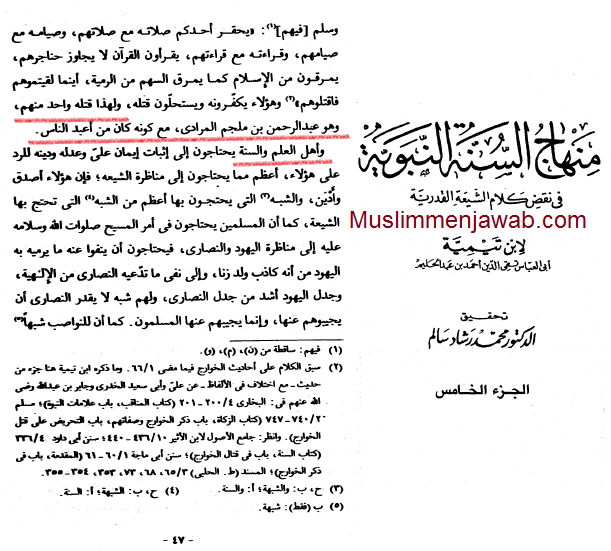 وسلم [فيهم](١): «يحقر أحدكم صلاته مع صلاتهم، وصيامه مع
صيامهم، وقراءته مع قراءتهم، يقرأون القرآن لا يجاوز حناجرهم،
يمرقون من الإسلام كما يمرق السهم من الرمية، أينما لقيتموهم
فاقتلوهم»(٢) وهؤلاء يكفرونه ويستحلّون قتله، ولهذا قتله واحد منهم،
وهو عبدالرحمن بن ملجم المرادى، مع كونه كان من أعبد الناس.
وأهل العلم والسنة يحتاجون إلى إثبات إيمان علىّ وعدله ودينه للرد
على هؤلاء، أعظم مما يحتاجون إلى مناظرة الشيعه؛ فإن هؤلاء أصدق
وأَدْيَن، والشبه(٣) التى يحتجون بها أعظم من الشبه(٤) التى تحتج بها
الشيعة، كما أن المسلمين يحتاجون فى أمر المسيح صلوات الله وسلامه
عليه إلى مناظرة اليهود والنصارى، فيحتاجون أن ينفوا عنه ما يرميه به
اليهود من أنه كاذب ولد زنا، وإلى نفى ما تدّعيه النصارى من الإلٰهية،
وجدل اليهود أشد من جدل النصارى، ولهم شبه لا يقدر النصارى أن
يجيبوهم عنها، وإنما يجيبهم عنها المسلمون. كما أن للنواصب شبهاً(٥)
(١) فيهم: ساقطة من (ن)، (م)، (و).
(٢) سبق الكلام على أحاديث الخوارج فيما مضى ٦٦/١. وما ذكره ابن تيمية هنا جزء من
حديث - مع اختلاف فى الألفاظ - عن علىّ وأبى سعيد الخدرى وجابر بن عبدالله رضى
الله عنهم فى: البخارى ٢٠٠/٤ - ٢٠١ (كتاب المناقب، باب علامات النبوة)؛ مسلم
٧٤٠/٢ - ٧٤٧ (كتاب الزكاة، باب ذكر الخوارج وصفاتهم، باب التحريض على قتل
الخوارج). وانظر: جامع الأصول لابن الأثير ٤٣٦/١٠ - ٤٤٠؛ سنن أبى داود ٣٣٦/٤
(كتاب السنة، باب فى قتال الخوارج)؛ سنن أبى ماجة ٦٠/١ - ٦١ (المقدمة، باب فى
ذكر الخوارج)؛ المسند (ط. الحلبى) ٦٥/٣، ٦٨، ٧٣، ٣٥٣، ٣٥٤ - ٣٥٥.
(٣) ح، ب: والشبهة؛ أ: والسنة. (٤) ح، ب: الشبهة؛ أ: السنة.
(٥) ب (فقط): شبهة.
- ٤٧ -
منهاج السنة النبوية
فى نقض كلام الشيعة القدرية
Muslimmenjawab.com
لابن تيمية
أبى العباس تقى الدين أحمد بن عبد الحليم
تحقيق
الدكتور محمد رشاد سالم
الجزء الخامس